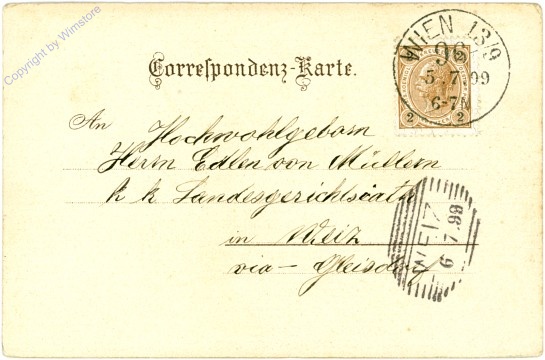 Copyright by Wimstore
WIEN 13/9
96
5 7 99
6-7N
2 2
Correspondenz-Karte.
An Hochwohlgeborn
Herrn Edlen von Müllern
k k Landesgerichtsrath
in Weiz
via – Gleisdorf
WEIZ
6 7 99